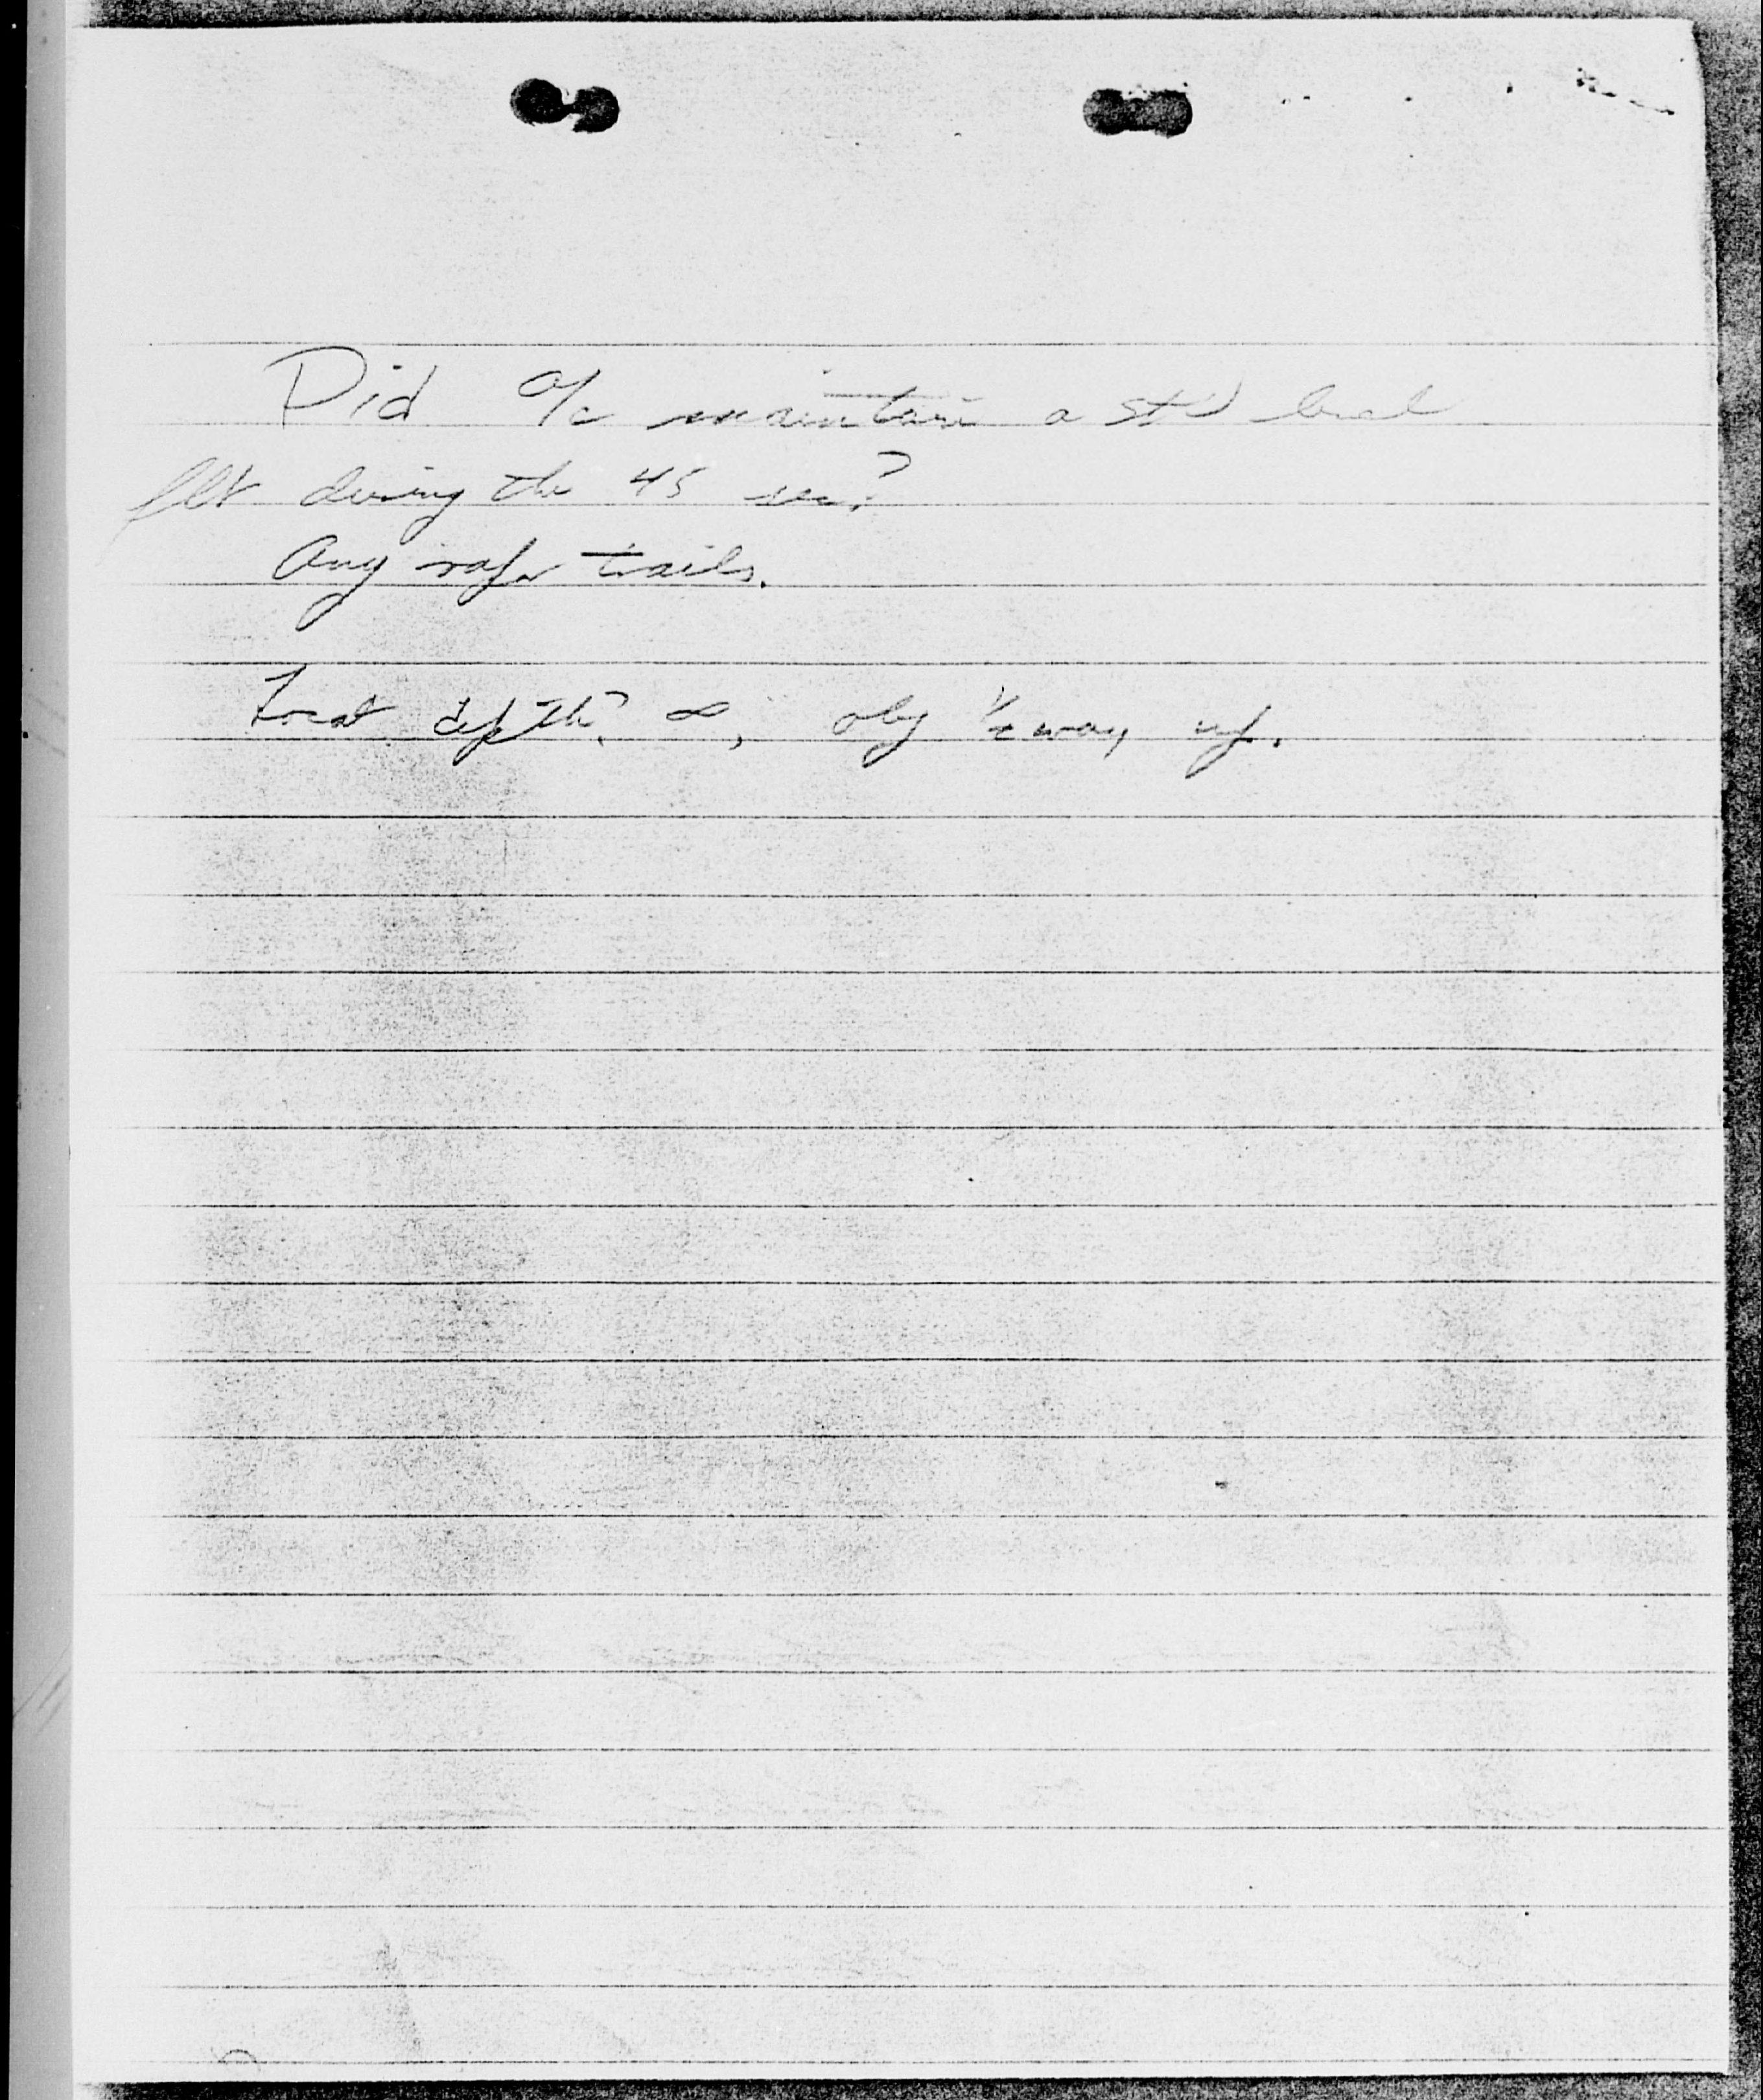 Did a/c maintain a st'd level
flt during the 45 sec?
Any vapor trails.
depth? ∞, obj 1/2 way up.